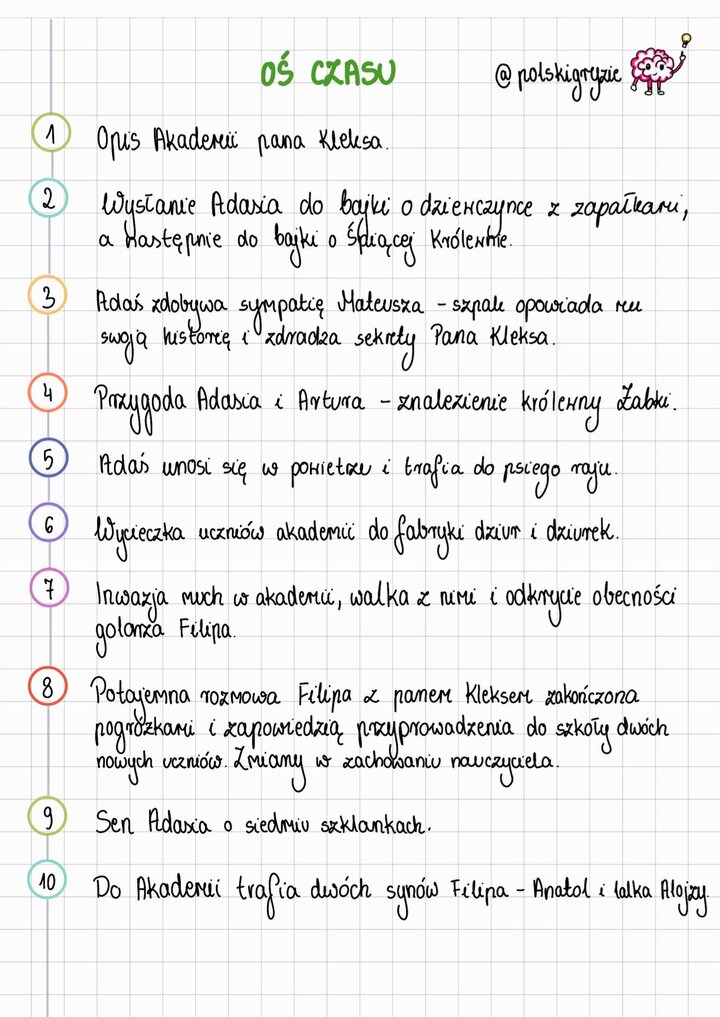 OŚ CZASU
@polskigryzie
1 Opis Akademii pana Kleksa.
2 Wysłanie Adasia do bajki o dziewczynce z zapałkami,
a następnie do bajki o Śpiącej Królewnie.
3 Adaś zdobywa sympatię Mateusza - szpak opowiada mu
swoją historię i zdradza sekrety Pana Kleksa.
4 Przygoda Adasia i Artura - znalezienie królewny Żabki.
5 Adaś unosi się w powietrzu i trafia do psiego raju.
6 Wycieczka uczniów akademii do fabryki dziur i dziurek.
7 Inwazja much w akademii, walka z nimi i odkrycie obecności
golarza Filipa.
8 Potajemna rozmowa Filipa z panem Kleksem zakończona
pogróżkami i zapowiedzią przyprowadzenia do szkoły dwóch
nowych uczniów. Zmiany w zachowaniu nauczyciela.
9 Sen Adasia o siedmiu szklankach.
10 Do Akademii trafia dwóch synów Filipa - Anatol i lalka Alojzy.